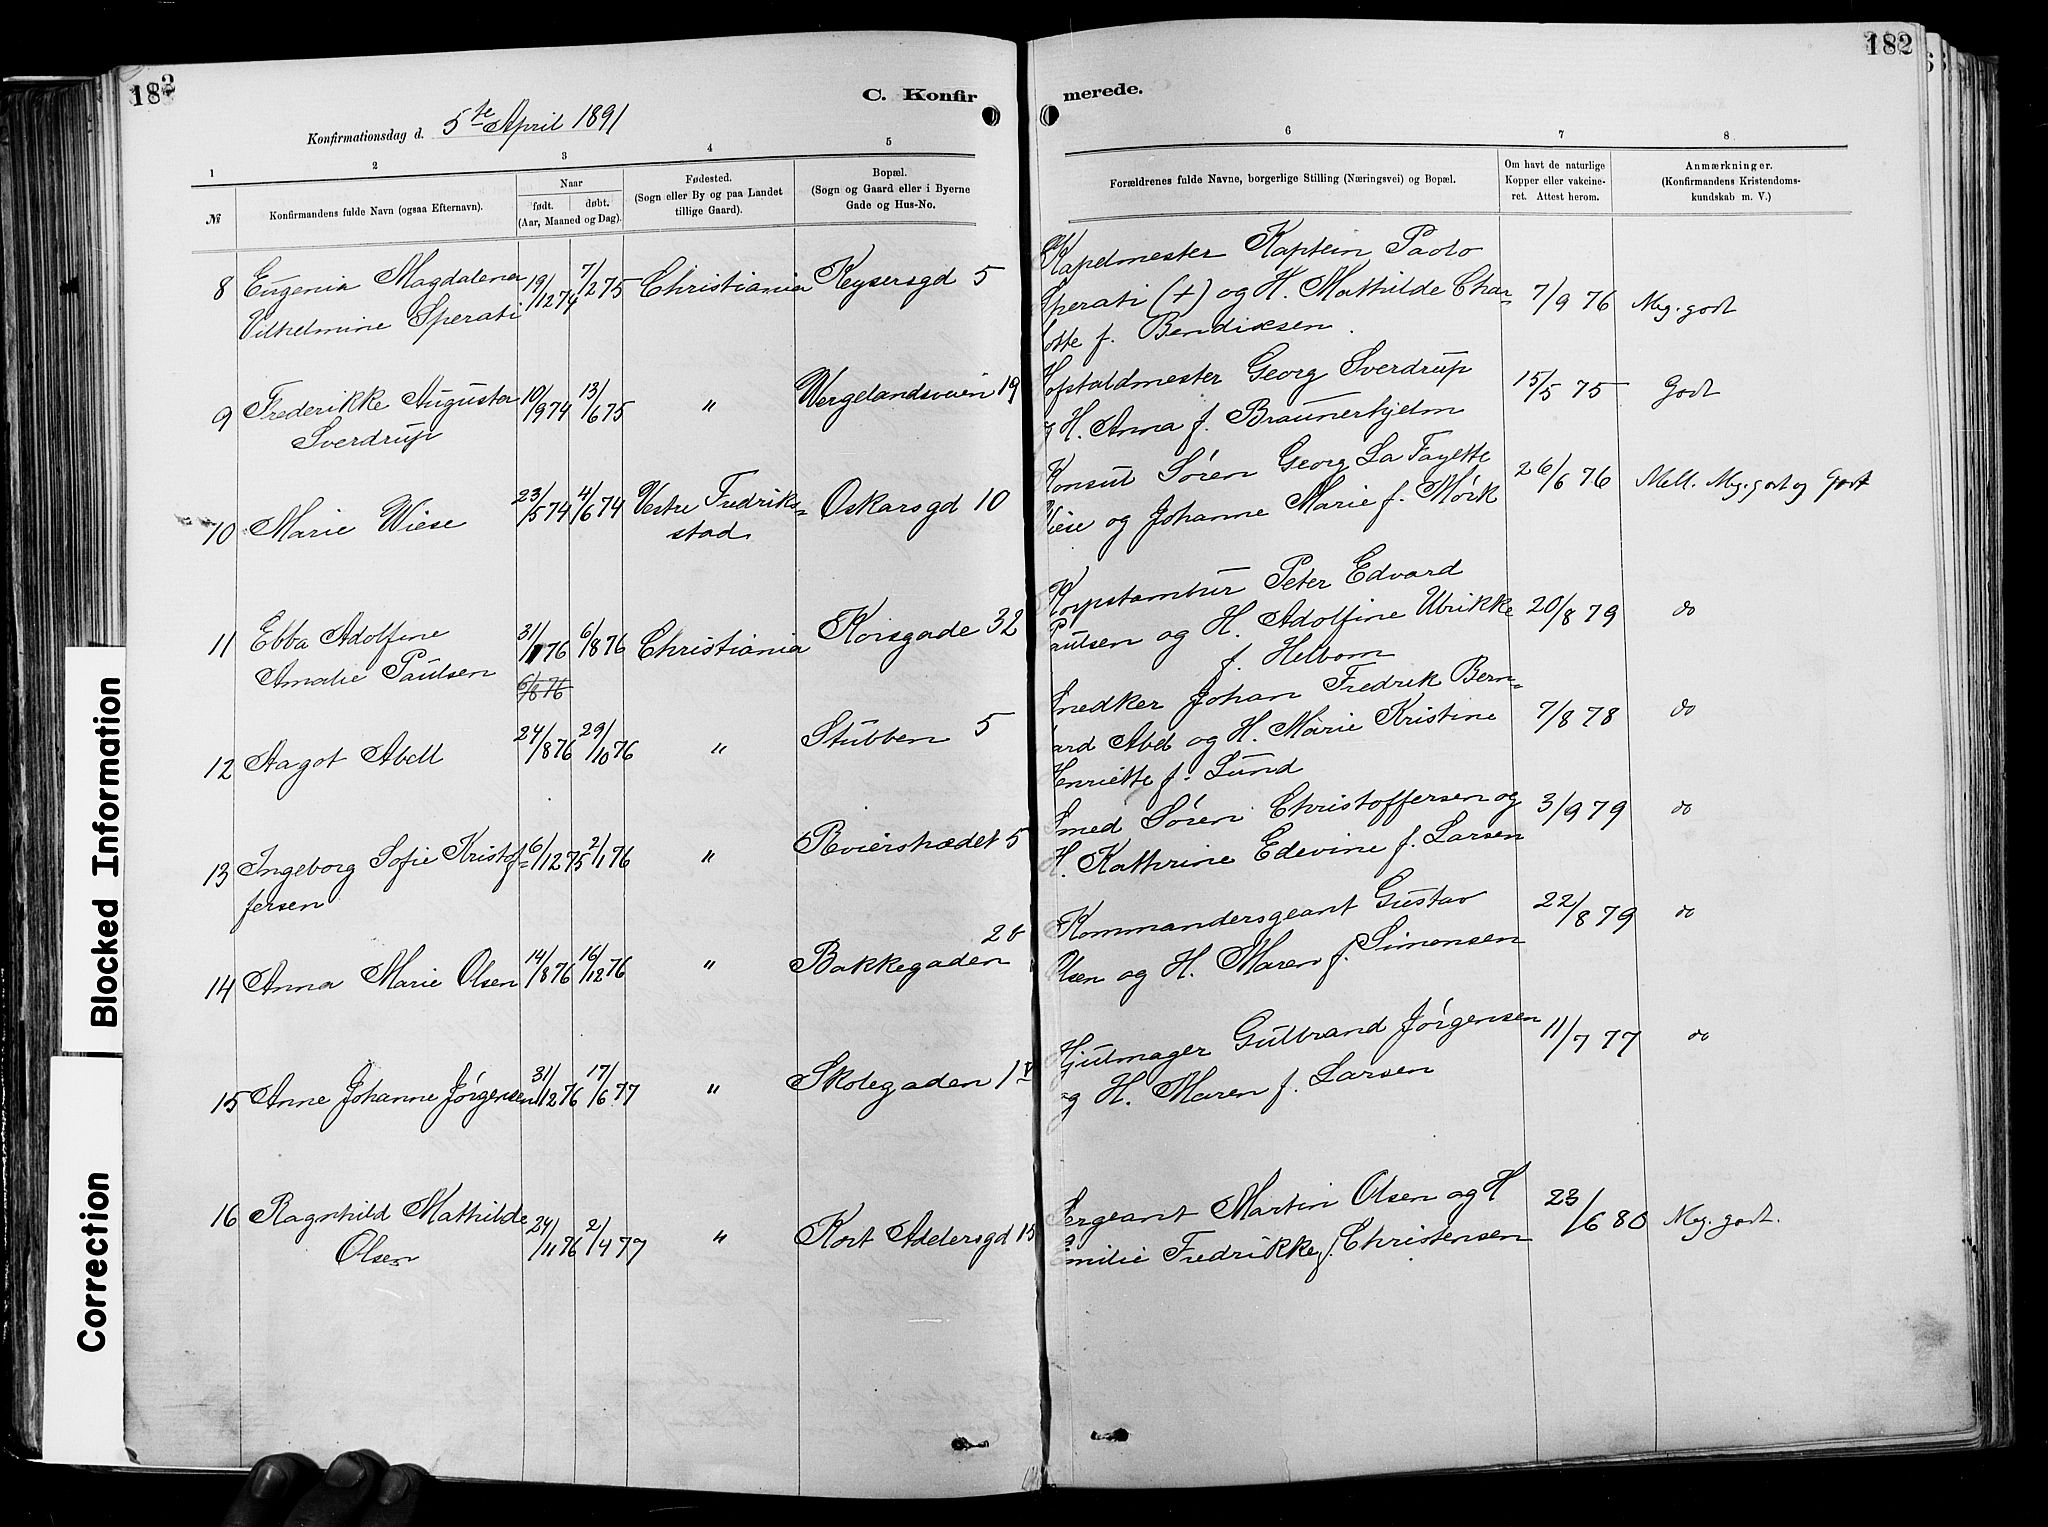 182
C. Konfir
merede.
182
Konfirmationsdag d. 5te April 1891
1 2 3 4 5 6 7 8
№
Konfirmandens fulde Navn (ogsaa Efternavn).
Naar
født. døbt.
(Aar, Maaned og Dag).
Fødested.
(Sogn eller By og paa Landet
tillige Gaard).
Bopæl.
(Sogn og Gaard eller i Byerne
Gade og Hus-No.
Forældrenes fulde Navne, borgerlige Stilling (Næringsvei) og Bopæl.
Om havt de naturlige
Kopper eller vakcine-
ret. Attest herom.
Anmærkninger.
(Konfirmandens Kristendoms-
kundskab m. V.)
8 Eugenia Magdalena 19/12 74 7/2 75 Christiania Keysersgd 5
Vilhelmine Sperati
Kapelmester Kaptein Paolo
Sperati (+) og H. Mathilde Char-
lotte f. Bendixsen.
7/9 76 Meg. godt
9 Frederikke Augusta 10/9 74 13/6 75 " Wergelandsveien 19
Sverdrup
Hofstaldmester Georg Sverdrup
og H. Anna f. Braunerhjelm
15/5 75 Godt
10 Marie Wiese 23/5 74 4/6 74 Vestre Fredriks- Oskarsgd 10
stad
Konsul Sören Georg La Fayette
Wiese og Johanne Marie f. Mørk
26/6 76 Mell. Meg. godt og Godt
11 Ebba Adolfine 31/1 76 6/8 76 Christiania Korsgade 32
Amalie Paulsen 6/8 76
Korpstambur Peter Edvard
Paulsen og H. Adolfine Ulrikke
f. Helbom
20/8 79 do
12 Aagot Abell 24/8 76 29/10 76 " Stubben 5
Snedker Johan Fredrik Bern-
hard Abel og H. Marie Kristine
Henriette f. Lund
7/8 78 do
13 Ingeborg Sofie Kristof- 6/12 75 2/1 76 " Revierstrædet 5
fersen
Smed Sören Christoffersen og
H. Kathrine Edevine f. Larsen
3/9 79 do
14 Anna Marie Olsen 14/8 76 16/12 76 " Bakkegaden 2b
Kommandersgeant Gustav
Olsen og H. Maren f. Simensen
22/8 79 do
15 Anne Johanne Jørgensen 31/12 76 17/6 77 " Skolegaden 1
Hjulmager Gulbrand Jørgensen
og H. Maren f. Larsen
11/7 77 do
16 Ragnhild Mathilde 24/11 76 2/4 77 " Kort Adelersgd 15
Olsen
Sergeant Martin Olsen og H
Emilie Fredrikke f. Christensen
23/6 80 Meg. godt.
Blocked Information
Correction